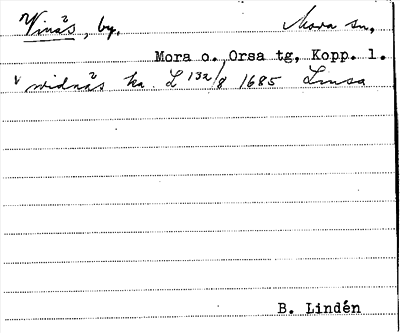 Vinås, by. Mora sn,
Mora o. Orsa tg, Kopp. l.
v widnås ka. L 132/8 1685 Limsa
B. Lindén